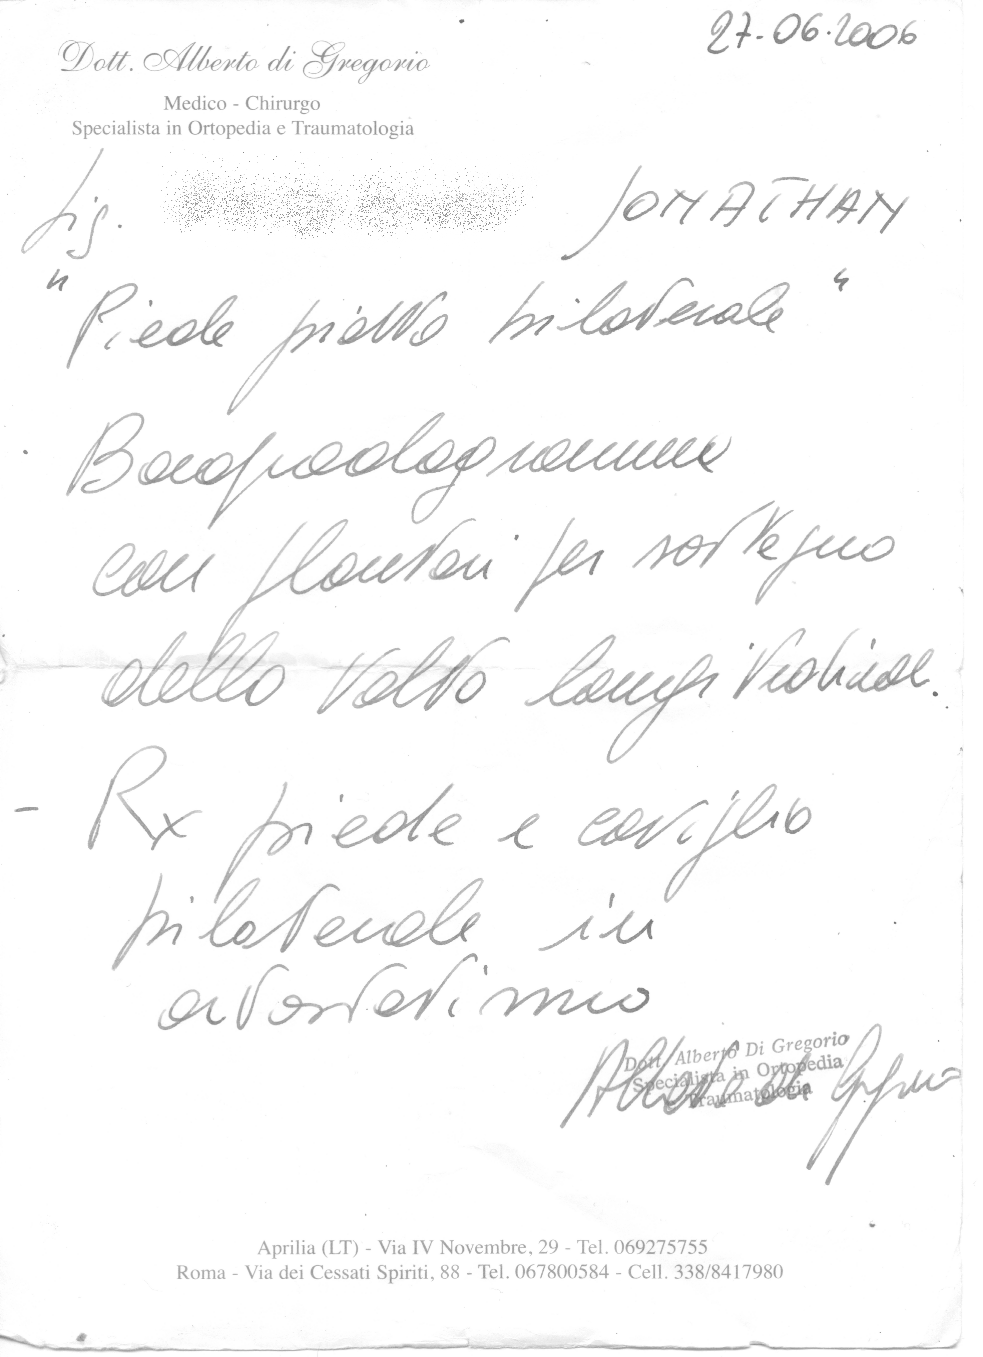 27-06-2006
Dott. Alberto di Gregorio
Medico - Chirurgo
Specialista in Ortopedia e Traumatologia
Sig. JONATHAN
"Piede piatto bilaterale"
Baropodogramma
con plantari per sostegno
della volta longitudinal.
- Rx piede e caviglia
bilaterale in
ortostatismo
Dott. Alberto Di Gregorio
Specialista in Ortopedia
Traumatologia
Alberto di Gregorio
Aprilia (LT) - Via IV Novembre, 29 - Tel. 069275755
Roma - Via dei Cessati Spiriti, 88 - Tel. 067800584 - Cell. 338/8417980